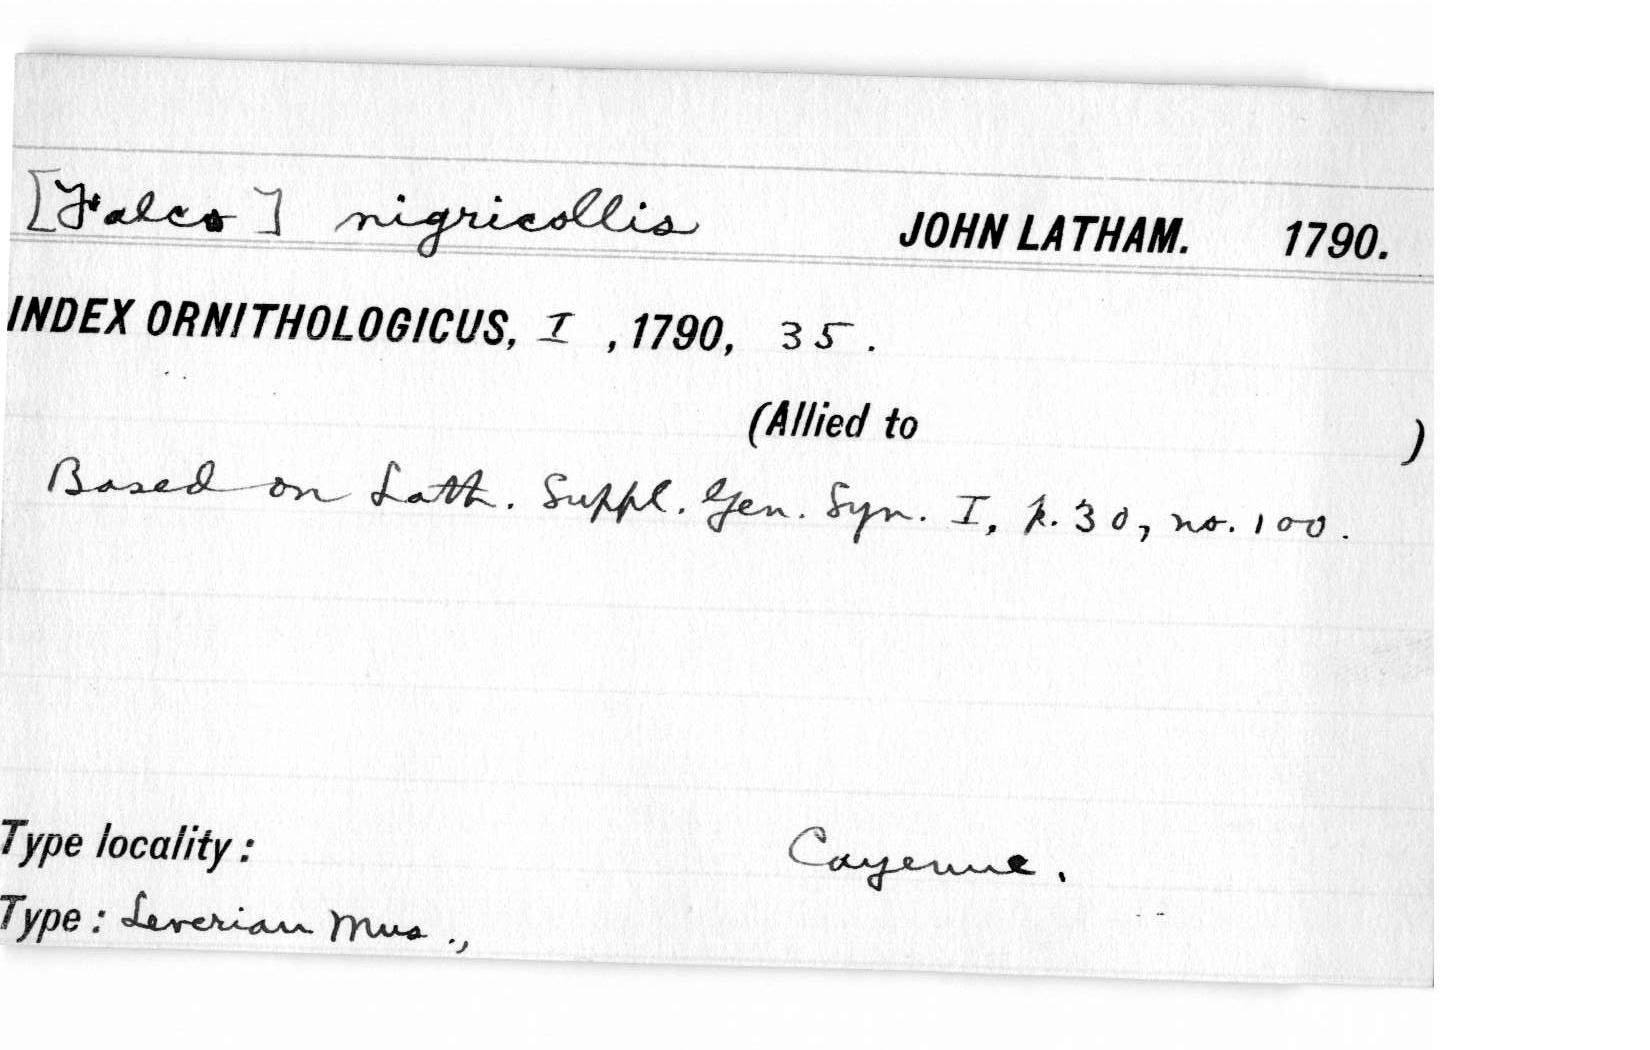 [Falco] nigricollis JOHN LATHAM. 1790.
INDEX ORNITHOLOGICUS, I , 1790, 35.
(Allied to )
Based on Lath. Suppl. Gen. Syn. I, p. 30, no. 100.
Type locality: Cayenne.
Type: Leverian Mus.,